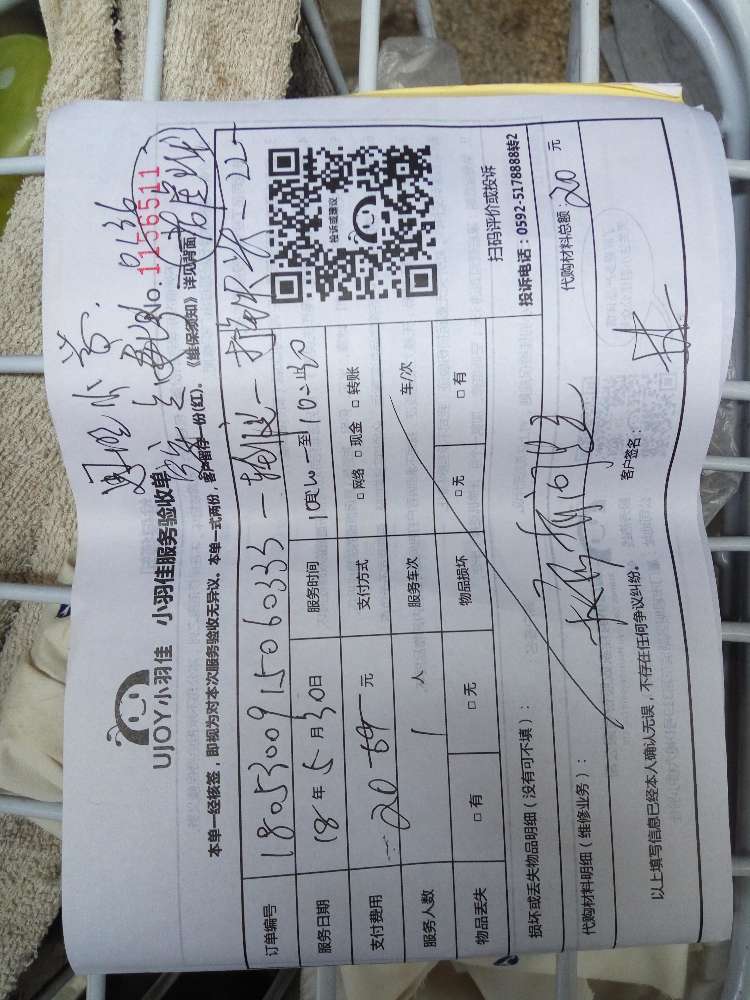 UJOY小羽佳 小羽佳服务验收单
No. 1156511
本单一经核签，即视为对本次服务验收无异议。本单一式两份，客户留存一份(红)。《维保须知》详见背面
订单编号 1805300915060333
服务日期 18年5月30日 服务时间 至
支付费用 20 元 支付方式 □ 网络 □ 现金 □ 转账
服务人数 1 人 服务车次 车/次
物品丢失 □ 有 □ 无 物品损坏 □ 无 □ 有
投诉或建议
扫码评价或投诉
投诉电话：0592-5178888转2
损坏或丢失物品明细（没有可不填）：
代购材料明细（维修业务）： 代购材料总额 200 元
以上填写信息已经本人确认无误，不存在任何争议纠纷。 客户签名： 林